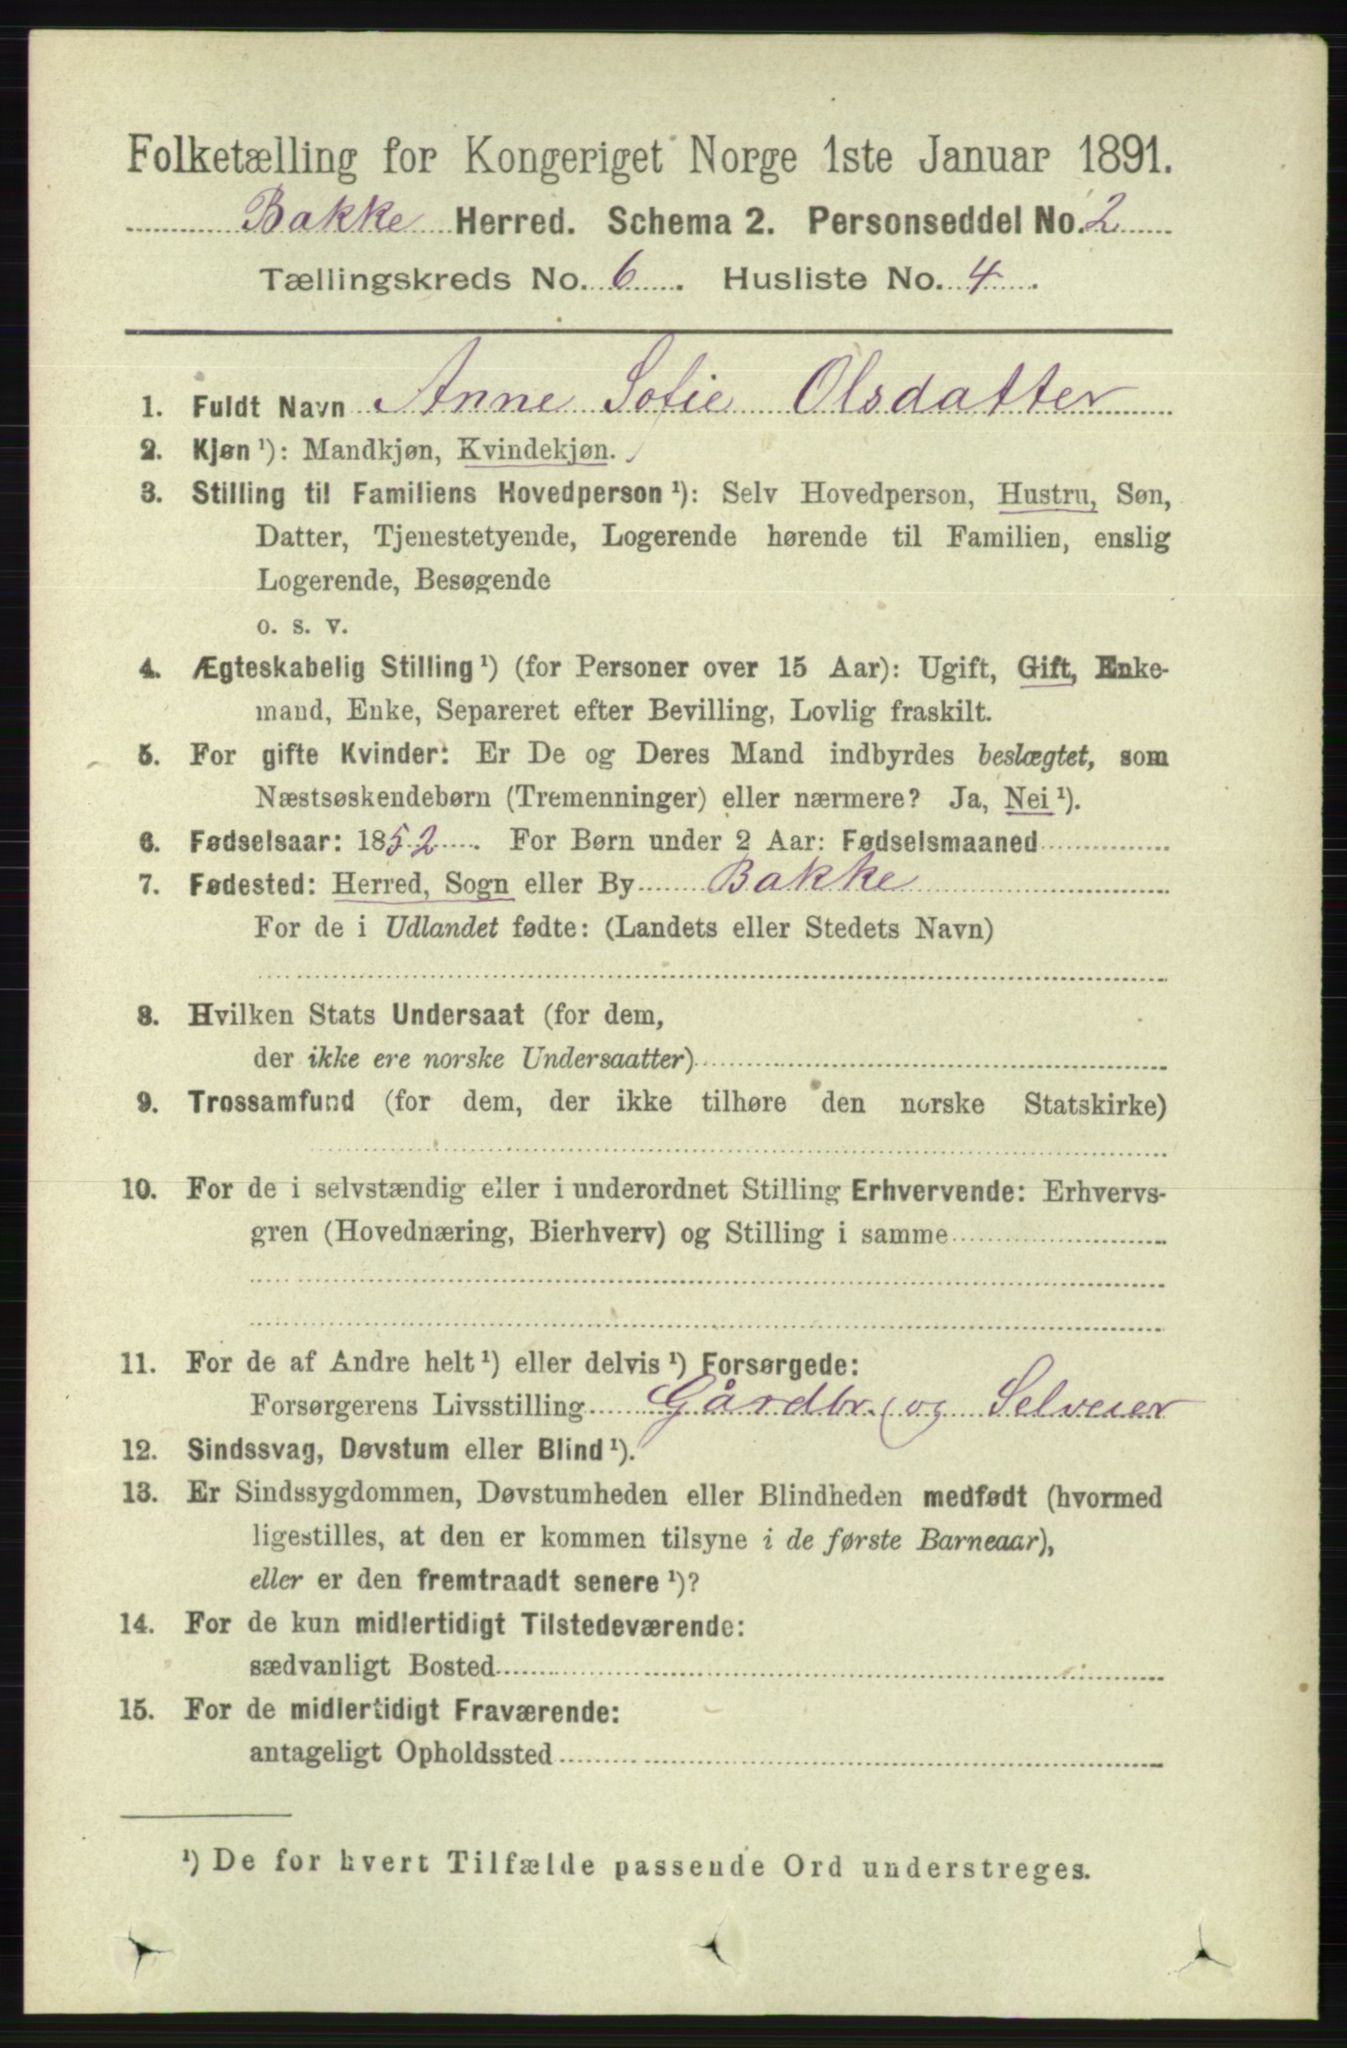 Folketælling for Kongeriget Norge 1ste Januar 1891.
Bakke Herred. Schema 2. Personseddel No. 2
Tællingskreds No. 6. Husliste No. 4.
1. Fuldt Navn Anne Sofie Olsdatter
2. Kjøn ¹): Mandkjøn, Kvindekjøn.
3. Stilling til Familiens Hovedperson ¹): Selv Hovedperson, Hustru, Søn,
Datter, Tjenestetyende, Logerende hørende til Familien, enslig
Logerende, Besøgende
o. s. v.
4. Ægteskabelig Stilling ¹) (for Personer over 15 Aar): Ugift, Gift, Enke-
mand, Enke, Separeret efter Bevilling, Lovlig fraskilt.
5. For gifte Kvinder: Er De og Deres Mand indbyrdes beslægtet, som
Næstsøskendebørn (Tremenninger) eller nærmere? Ja, Nei ¹).
6. Fødselsaar: 1852. For Børn under 2 Aar: Fødselsmaaned
7. Fødested: Herred, Sogn eller By Bakke
For de i Udlandet fødte: (Landets eller Stedets Navn)
8. Hvilken Stats Undersaat (for dem,
der ikke ere norske Undersaatter)
9. Trossamfund (for dem, der ikke tilhøre den norske Statskirke)
10. For de i selvstændig eller i underordnet Stilling Erhvervende: Erhvervs-
gren (Hovednæring, Bierhverv) og Stilling i samme
11. For de af Andre helt ¹) eller delvis ¹) Forsørgede:
Forsørgerens Livsstilling Gårdbr. og Selveier
12. Sindssvag, Døvstum eller Blind ¹).
13. Er Sindssygdommen, Døvstumheden eller Blindheden medfødt (hvormed
ligestilles, at den er kommen tilsyne i de første Barneaar),
eller er den fremtraadt senere ¹)?
14. For de kun midlertidigt Tilstedeværende:
sædvanligt Bosted
15. For de midlertidigt Fraværende:
antageligt Opholdssted
¹) De for hvert Tilfælde passende Ord understreges.